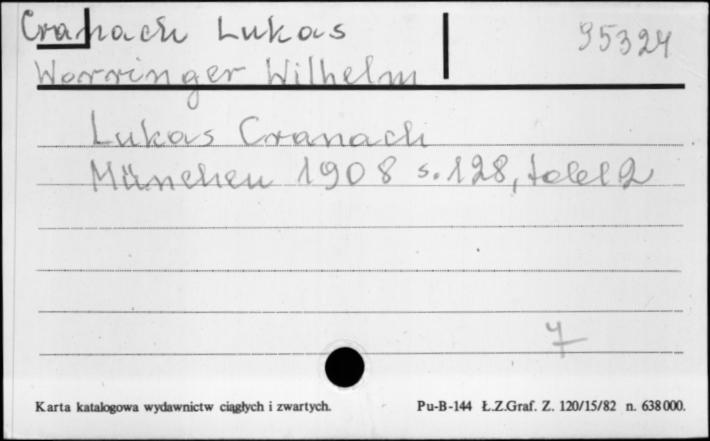 Cranach Lukas 95324
Worringer Wilhelm
Lukas Cranach
München 1908 s. 128, tabl 2
7
Karta katalogowa wydawnictw ciągłych i zwartych. Pu-B-144 Ł.Z.Graf. Z. 120/15/82 n. 638000.